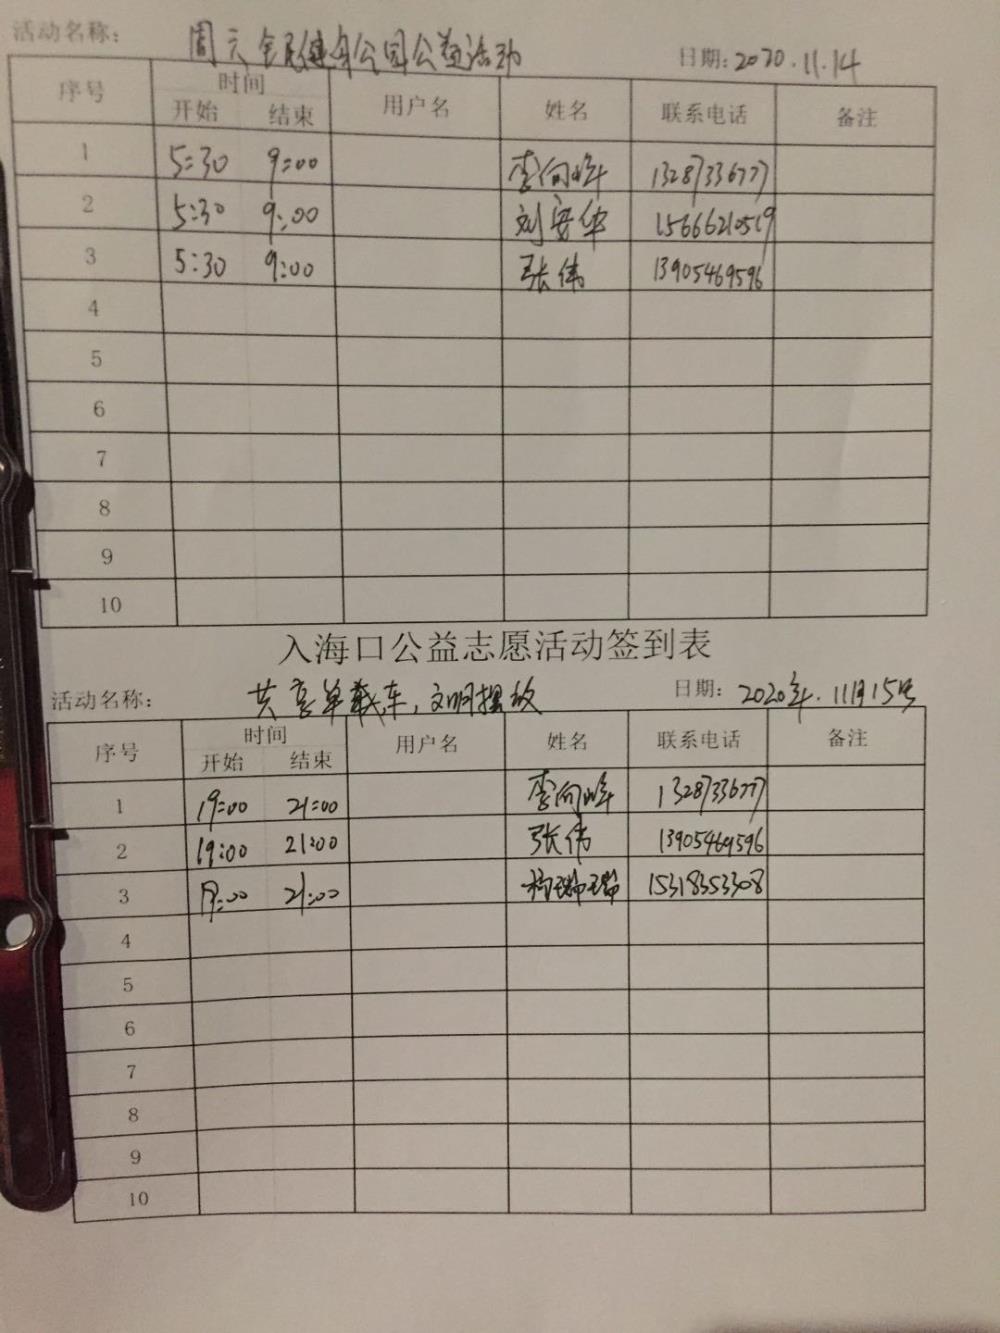 活动名称： 周六全民健身公园公益活动 日期：2020.11.14
序号 时间 用户名 姓名 联系电话 备注
开始 结束
1 5:30 9:00 李向峰 13287336777
2 5:30 9:00 刘安华 15666210519
3 5:30 9:00 张伟 13905469596
4
5
6
7
8
9
10
入海口公益志愿活动签到表
活动名称： 共享单载车，文明摆放 日期： 2020年.11月15号
序号 时间 用户名 姓名 联系电话 备注
开始 结束
1 19:00 21:00 李向峰 13287336777
2 19:00 21:00 张伟 13905469596
3 19:00 21:00 杨瑞瑞 15318353308
4
5
6
7
8
9
10